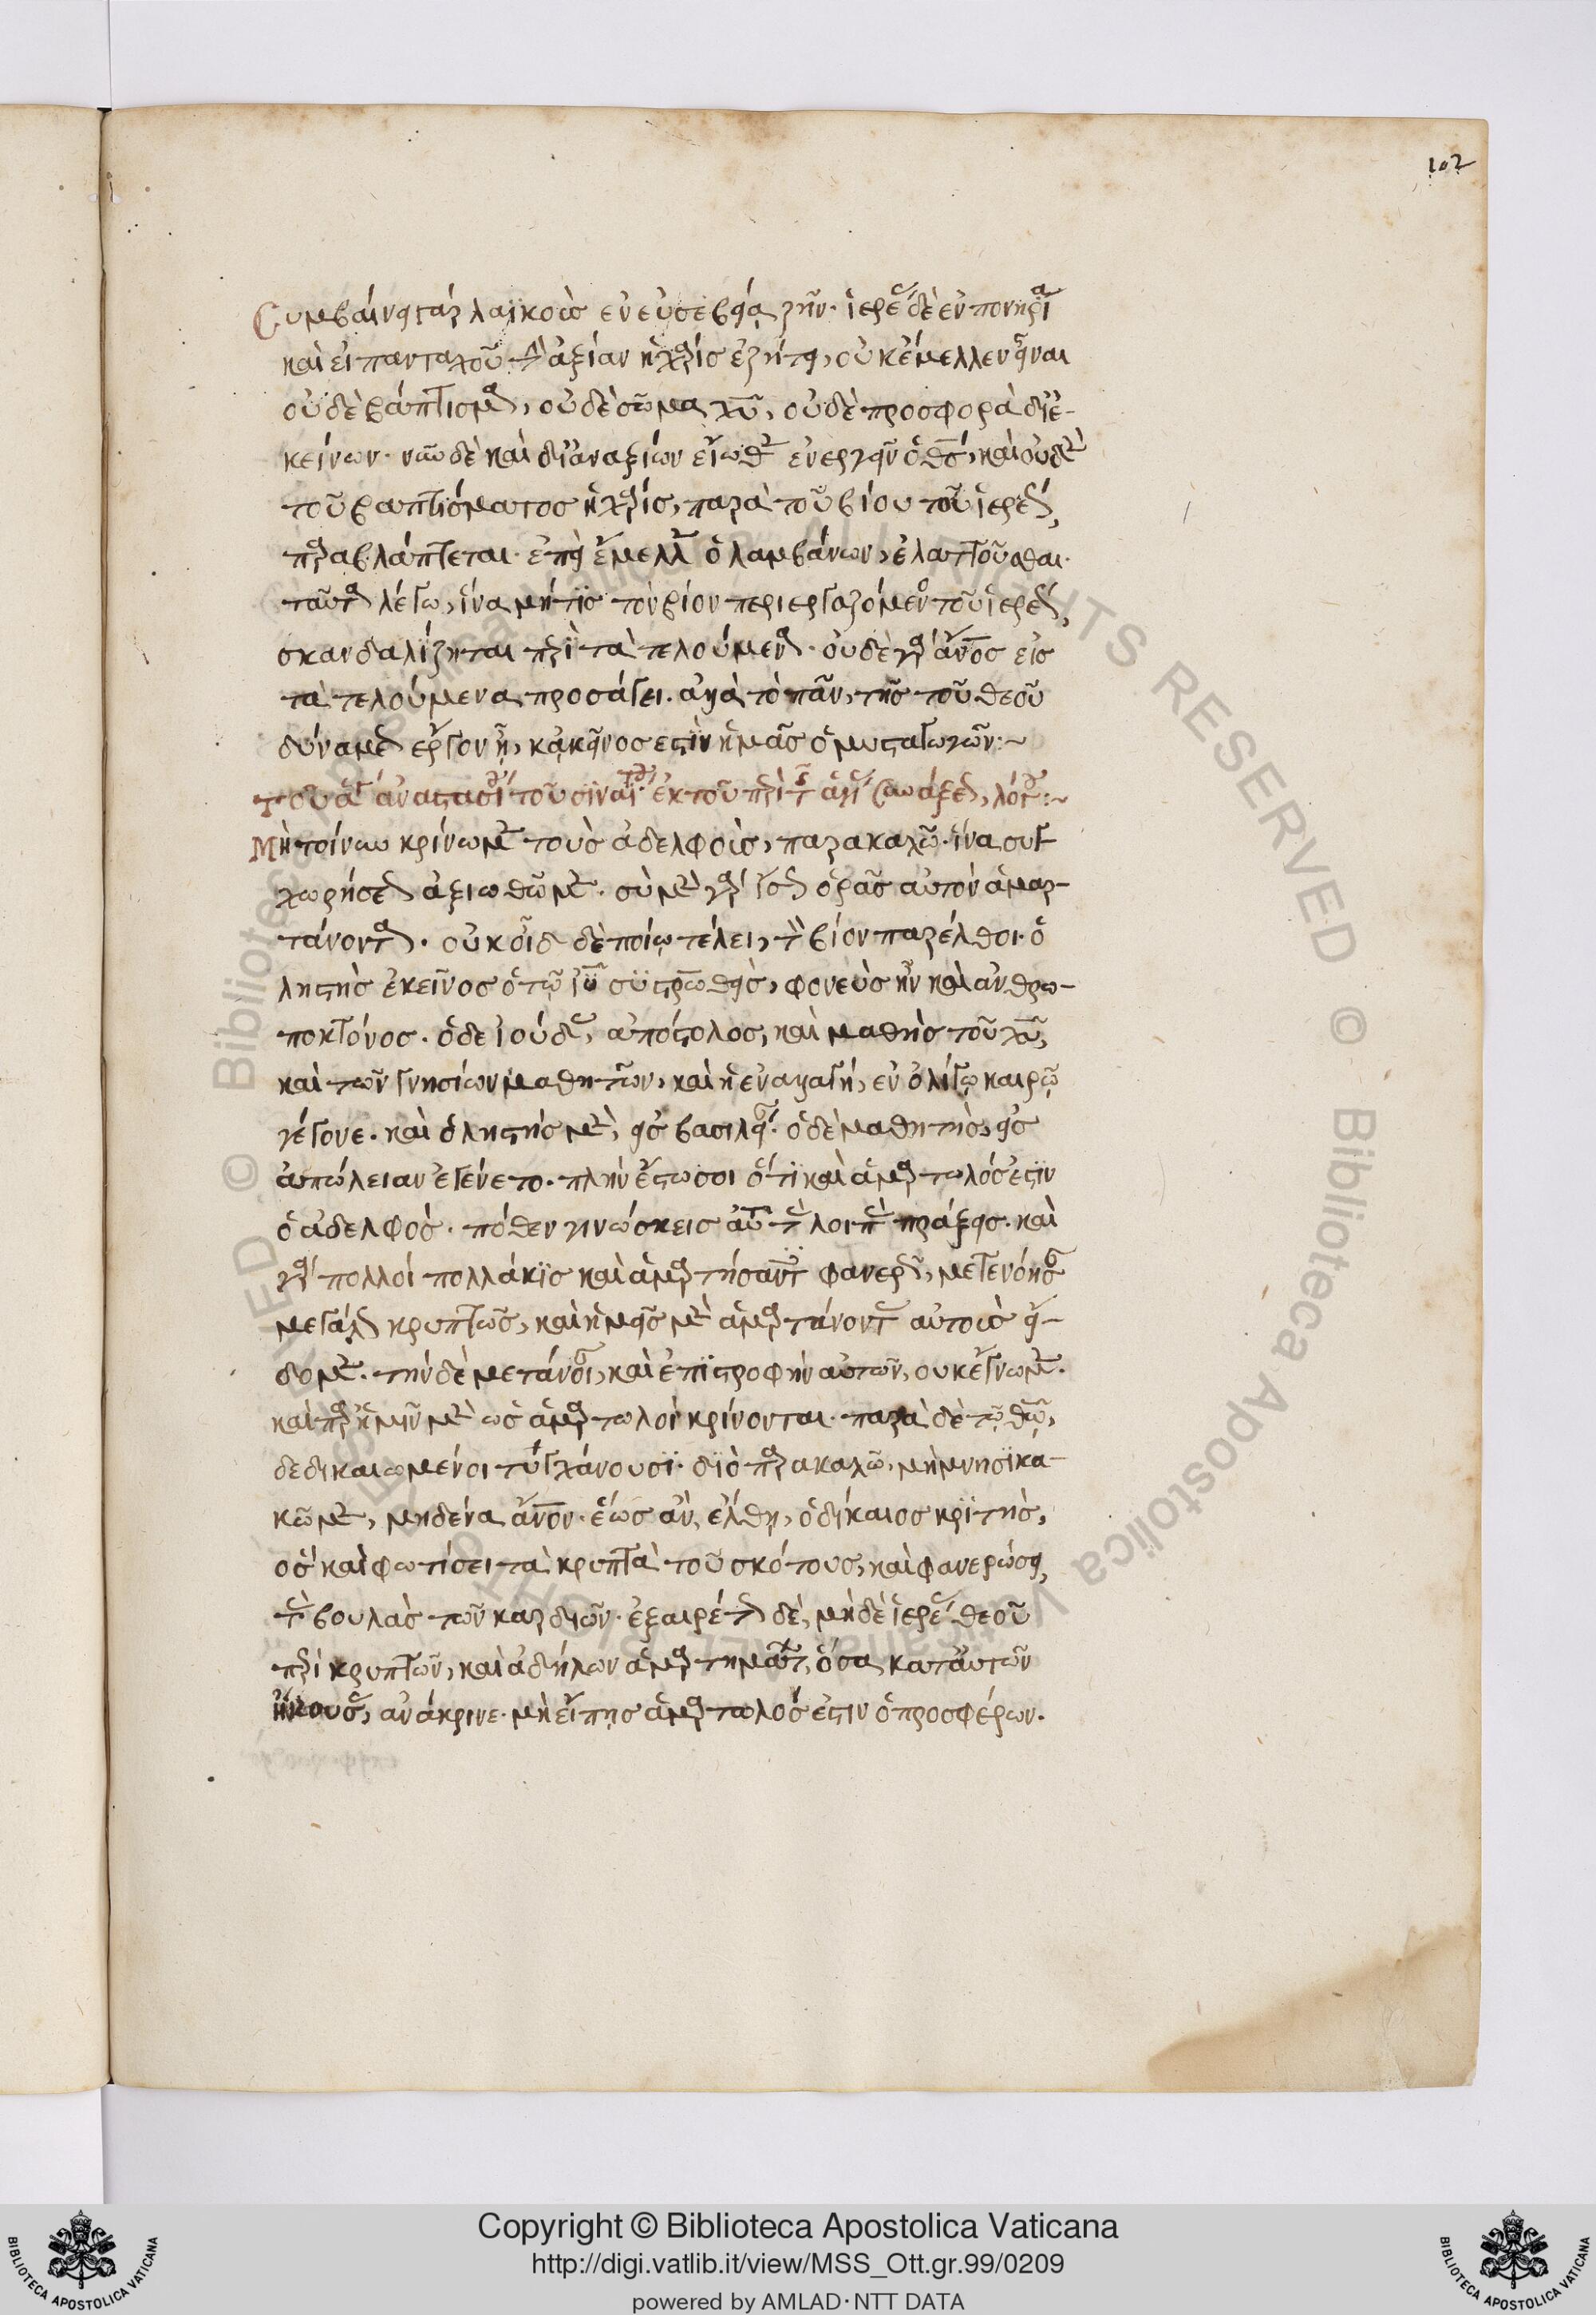 102
Συμβαίνει γὰρ λαϊκοὺς ἐν εὐσεβείᾳ ζῆν· ἱερεῖς δὲ ἐν πονηρίᾳ
καὶ εἰ πανταχοῦ τὴν ἀξίαν ἡ χάρις ἐζήτει, οὐκ ἔμελλεν εἶναι
οὐδὲ βάπτισμα, οὐδὲ σῶμα χυ, οὐδὲ προσφορὰ δι' ἐ-
κείνων· νῦν δὲ καὶ δι' ἀναξίων εἴωθεν ἐνεργεῖν ὁ θς, καὶ οὐδὲν
τοῦ βαπτίσματος ἡ χάρις, παρὰ τοῦ βίου τοῦ ἱερέως
παραβλάπτεται· ἐπεὶ ἔμελλεν ὁ λαμβάνων, ἐλαττοῦσθαι·
ταῦτα λέγω, ἵνα μή τις τὸν βίον περιεργαζόμενος τοῦ ἱερέως,
σκανδαλίζηται περὶ τὰ τελούμενα· οὐδὲν γὰρ ἄνος εἰς
τὰ τελούμενα προσάγει. ἀλλὰ τὸ πᾶν, τῆς τοῦ θεοῦ
δυνάμεως ἔργον ἦν, κἀκεῖνος ἐστὶν ἡμᾶς ὁ μυσταγωγῶν:~
Τοῦ ἁγίου ἀναστασίου τοῦ σιναΐτου ἐκ τοῦ περὶ τῆς ἁγίας συνάξεως, λόγου:~
Μὴ τοίνυν κρίνωμεν τοὺς ἀδελφοὺς, παρακαλῶ· ἵνα συγ
χωρήσεως ἀξιωθῶμεν. σὺ μὲν γὰρ ἴσως ὁρᾶς αὐτὸν ἁμαρ-
τάνοντα. οὐκ οἶδας δὲ ποίῳ τέλει, τὸν βίον παρέλθοι· ὁ
ληστὴς ἐκεῖνος ὁ τῷ ιυ συστρωθεὶς, φονεὺς ἦν καὶ ἀνθρω-
ποκτόνος. ὁ δὲ ἰούδας, ἀπόστολος, καὶ μαθητὴς τοῦ χυ,
καὶ τῶν γνησίων μαθητῶν, καὶ ἡ ἐναλλαγή, ἐν ὀλίγῳ καιρῷ
γέγονε. καὶ ὁ ληστὴς μὲν, εἰς βασιλείαν· ὁ δὲ μαθητὴς, εἰς
ἀπώλειαν ἐγένετο. πλὴν ἔστω σοι ὅτι καὶ ἁμαρτωλός ἐστιν
ὁ ἀδελφὸς. πόθεν γινώσκεις αὐτοῦ τὰς λοιπὰς πράξεις. καὶ
γὰρ πολλοὶ πολλάκις καὶ ἁμαρτήσαντες φανερῶς, μετενόησαν
μεγάλως κρυπτῶς, καὶ ἡμεῖς μὲν ἁμαρτάνοντας αὐτοὺς εἴ-
δομεν. τὴν δὲ μετάνοιαν, καὶ ἐπιστροφὴν αὐτῶν, οὐκ ἔγνωμεν.
καὶ παρ' ἡμῖν μὲν ὡς ἁμαρτωλοὶ κρίνονται· παρὰ δὲ τῷ θῷ,
δεδικαιωμένοι τυγχάνουσι· διὸ παρακαλῶ, μὴ μνησικα-
κῶμεν, μηδένα ἄνον· ἕως ἂν ἔλθῃ, ὁ δίκαιος κριτὴς,
ὃς καὶ φωτίσει τὰ κρυπτὰ τοῦ σκότους, καὶ φανερώσει
τὰς βουλὰς τῶν καρδιῶν· ἐξαιρέτως δὲ, μὴ δὲ ἱερεῖς θεοῦ
περὶ κρυπτῶν, καὶ ἀδήλων ἁμαρτημάτων, ὅσα κατ' αὐτῶν
ἤκουσας, ἀνάκρινε· μὴ εἴπῃς ἁμαρτωλός ἐστιν ὁ προσφέρων.
Copyright © Biblioteca Apostolica Vaticana
http://digi.vatlib.it/view/MSS_Ott.gr.99/0209
powered by AMLAD·NTT DATA